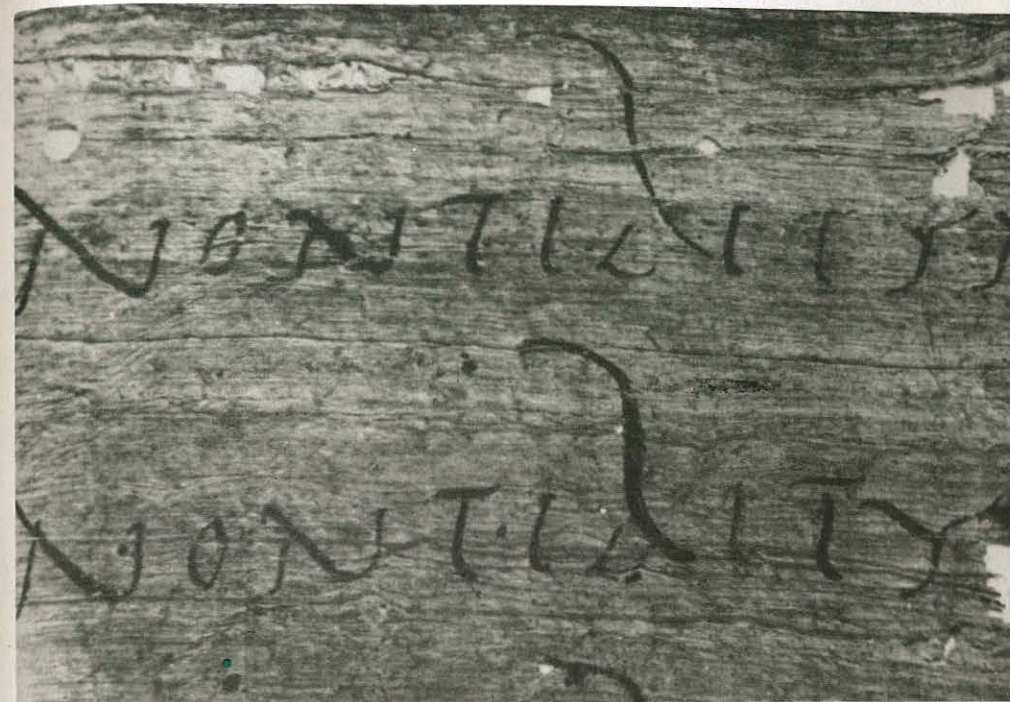 NON TIBI TY
NON TIBI TY